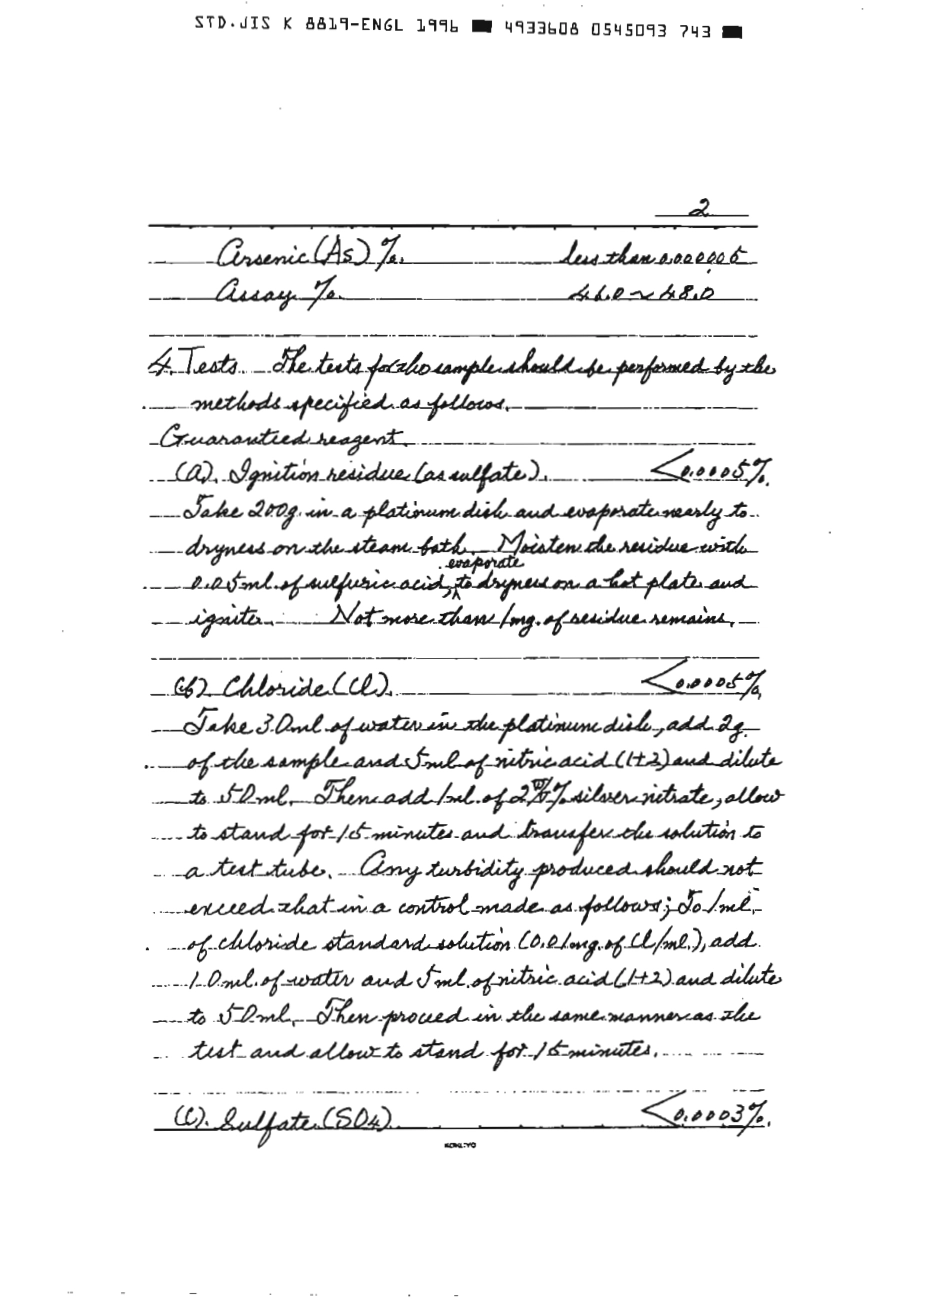 STD.JIS K 8819-ENGL 1996 ■ 4933608 0545093 743 ■
2
Arsenic (As) %. less than 0.000005
Assay % 46.0 ~ 48.0
4. Tests The tests for the sample should be performed by the
methods specified as follows.
Guarantied reagent
(a). Ignition residue (as sulfate). <0.0005%.
Take 200g. in a platinum dish and evaporate nearly to
dryness on the steam bath. Moisten the residue with
evaporate
0.05ml. of sulfuric acid, to dryness on a hot plate and
ignite. Not more than 1mg. of residue remains.
(b) Chloride (Cl). <0.0005%
Take 30ml of water in the platinum dish, add 2g
of the sample and 5ml of nitric acid (1+2) and dilute
to 50ml. Then add 1ml. of 2% silver nitrate, allow
to stand for 15 minutes and transfer the solution to
a test tube. Any turbidity produced should not
exceed that in a control made as follows; To 1ml.
of chloride standard solution (0.01mg. of Cl/ml.), add
10ml. of water and 5ml. of nitric acid (1+2) and dilute
to 50ml. Then proceed in the same manner as the
test and allow to stand for 15 minutes.
(C). Sulfate (SO4) <0.0003%.
KOKUYO